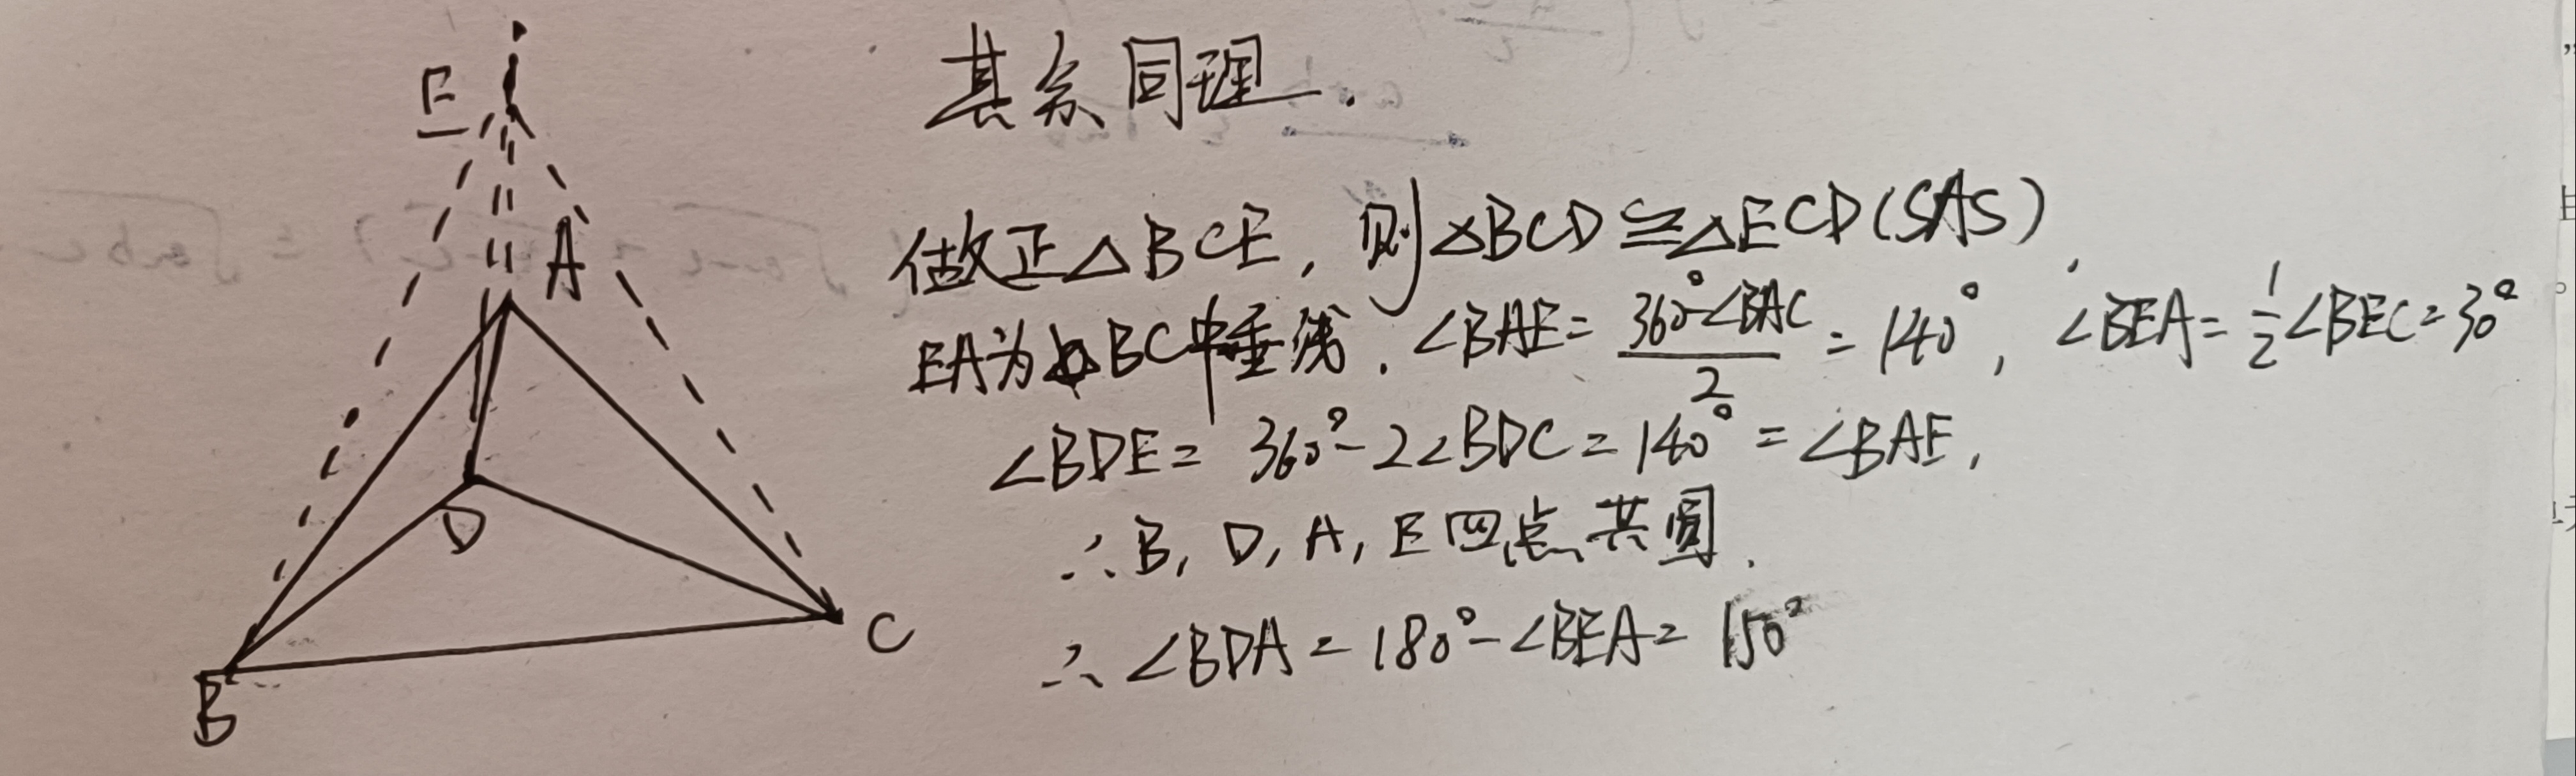 其余同理.
做正△BCE, 则△BCD≌△ECD(SAS).
EA为BC中垂线. ∠BAE=(360°-∠BAC)/2=140°, ∠BEA=1/2∠BEC=30°
∠BDE=360°-2∠BDC=140°=∠BAE,
∴B, D, A, E四点共圆.
∴∠BDA=180°-∠BEA=150°
E
A
D
C
B